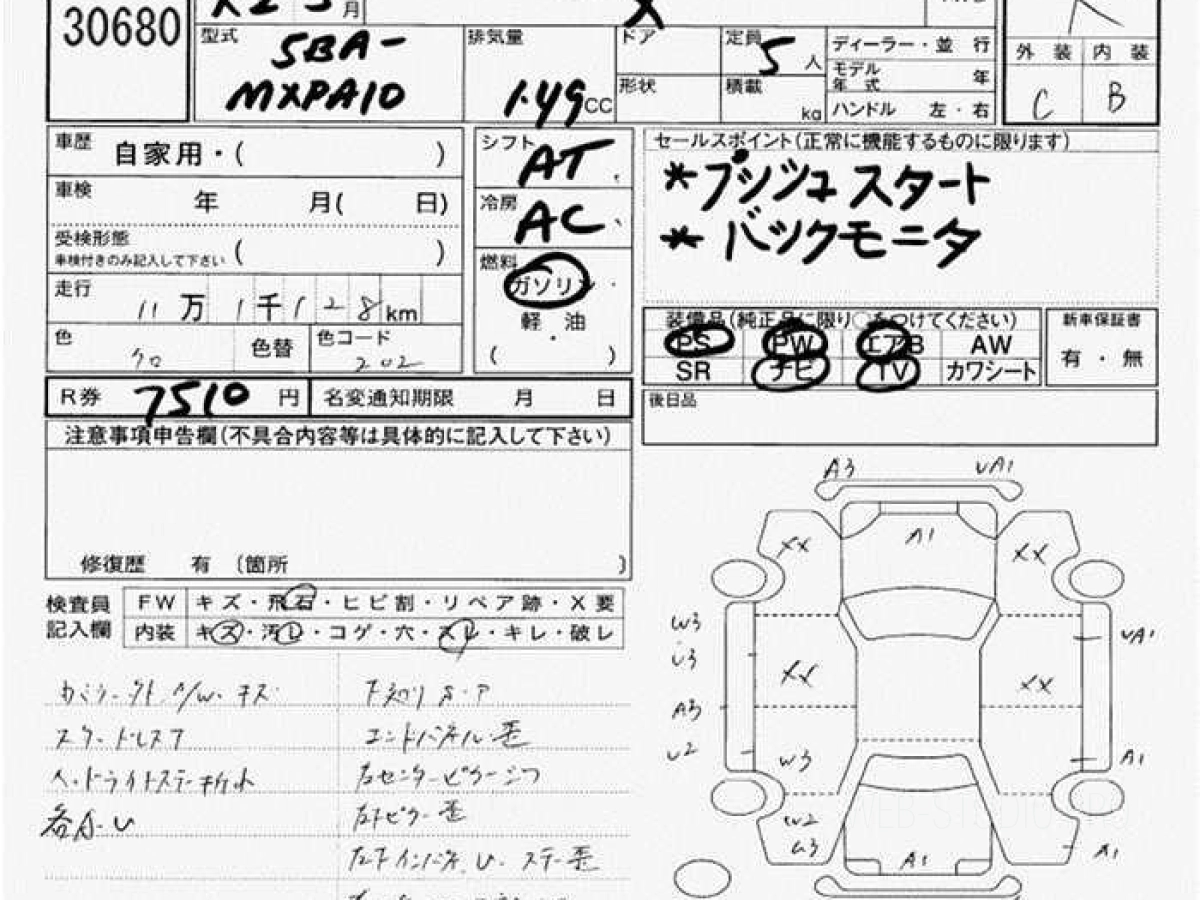 30680 月 X
型式 5BA-
MXPA10
排気量 1.49 CC
ドア
形状
定員 5 人
積載 kg
ディーラー・並 行
モデル年式 年
ハンドル 左・右
外 装 内 装
C B
車歴 自家用・( )
車検 年 月( 日)
受検形態
車検付きのみ記入して下さい ( )
走行 11 万 1 千 128 km
色 クロ 色替 色コード 202
シフト AT
冷房 AC
燃料 ガソリン・
軽 油
・
( )
セールスポイント(正常に機能するものに限ります)
*プッシュスタート
*バックモニタ
装備品(純正品に限り○をつけてください)
PS PW エアB AW
SR ナビ TV カワシート
新車保証書
有 ・ 無
後日品
R券 7510 円 名変通知期限 月 日
注意事項申告欄(不具合内容等は具体的に記入して下さい)
修復歴 有 〔箇所 〕
検査員
記入欄
FW キズ・飛石・ヒビ割・リペア跡・X要
内装 キズ・汚レ・コゲ・穴・スレ・キレ・破レ
スタードレス7
ヘッドライトステー折れ
各A・U
エンドパネル歪
左センターピラー
左Fピラー歪
左Fインパネ.U. ステー歪
A3 UA1
A1
XX XX
W3
U3
UA1
XX XX
A3
U2
W3
A1
W2
U3
A1
A1